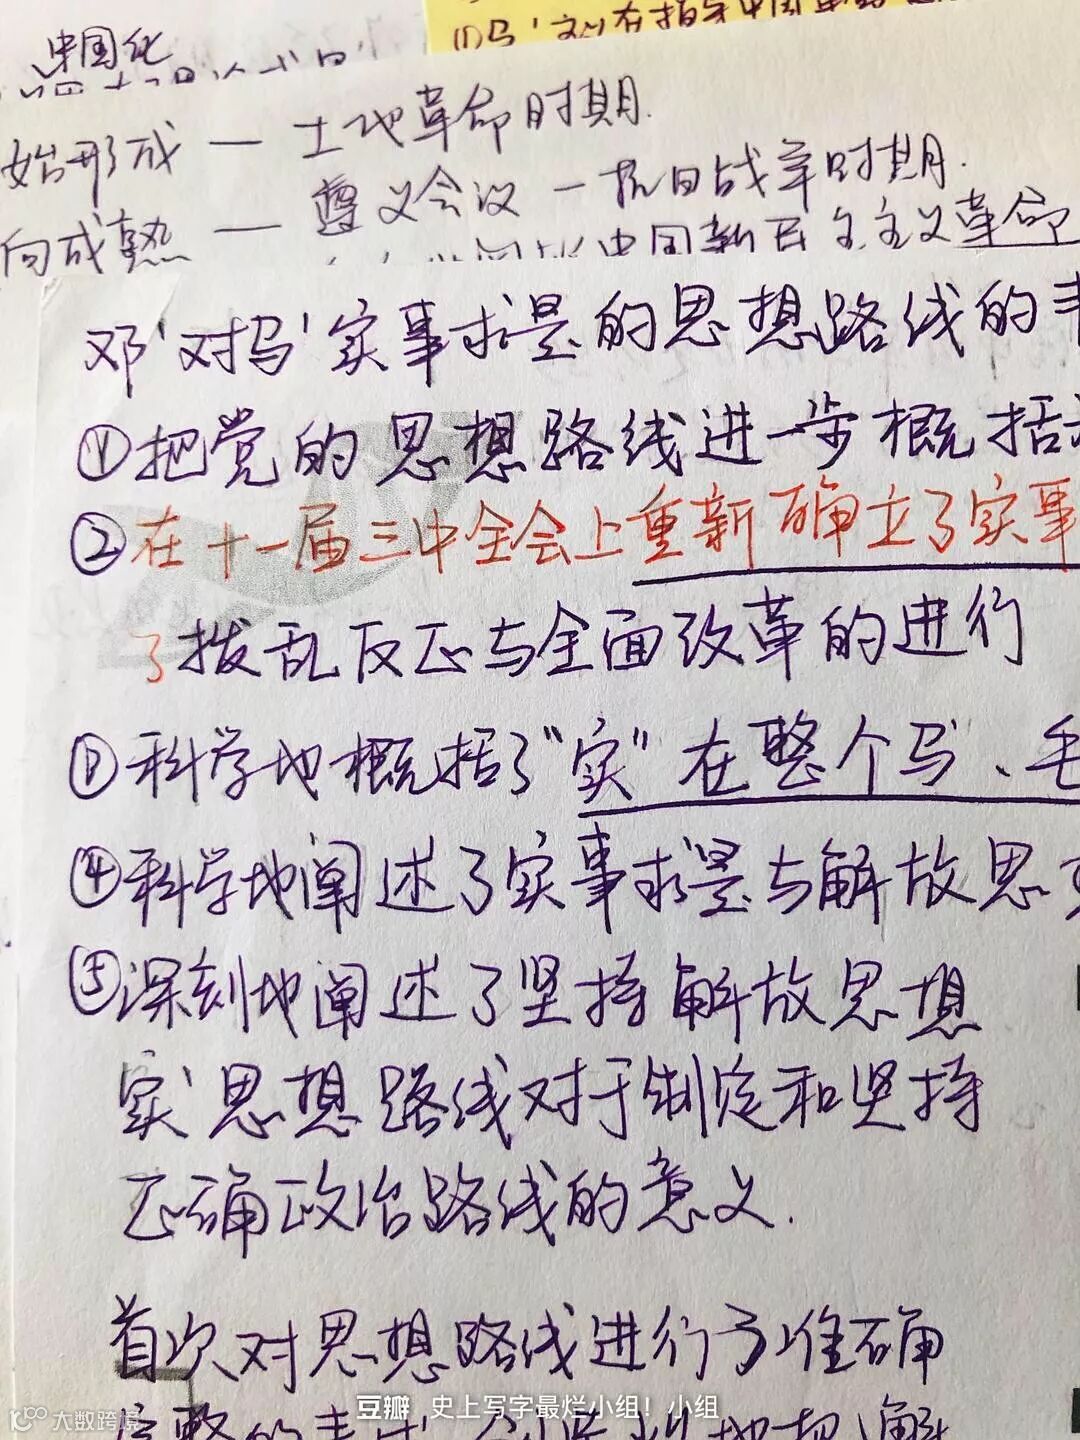 中国化
始形成 — 土地革命时期.
向成熟 — 遵义会议 — 抗日战争时期.
中国新民主主义革命
邓'对马'实事求是的思想路线的丰
①把党的思想路线进一步概括
②在十一届三中全会上重新确立了实事
了拨乱反正与全面改革的进行
③科学地概括了"实"在整个马、毛
④科学地阐述了实事求是与解放思
⑤深刻地阐述了坚持解放思想
实'思想路线对于制定和坚持
正确政治路线的意义.
首次对思想路线进行了准确
豆瓣 史上写字最烂小组！小组
大数跨境